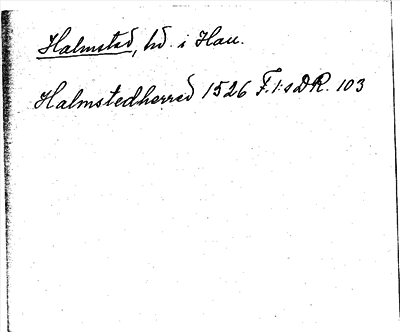 Halmsted, hd. i Hall.
Halmstedherred 1526 F.1:s DR. 103